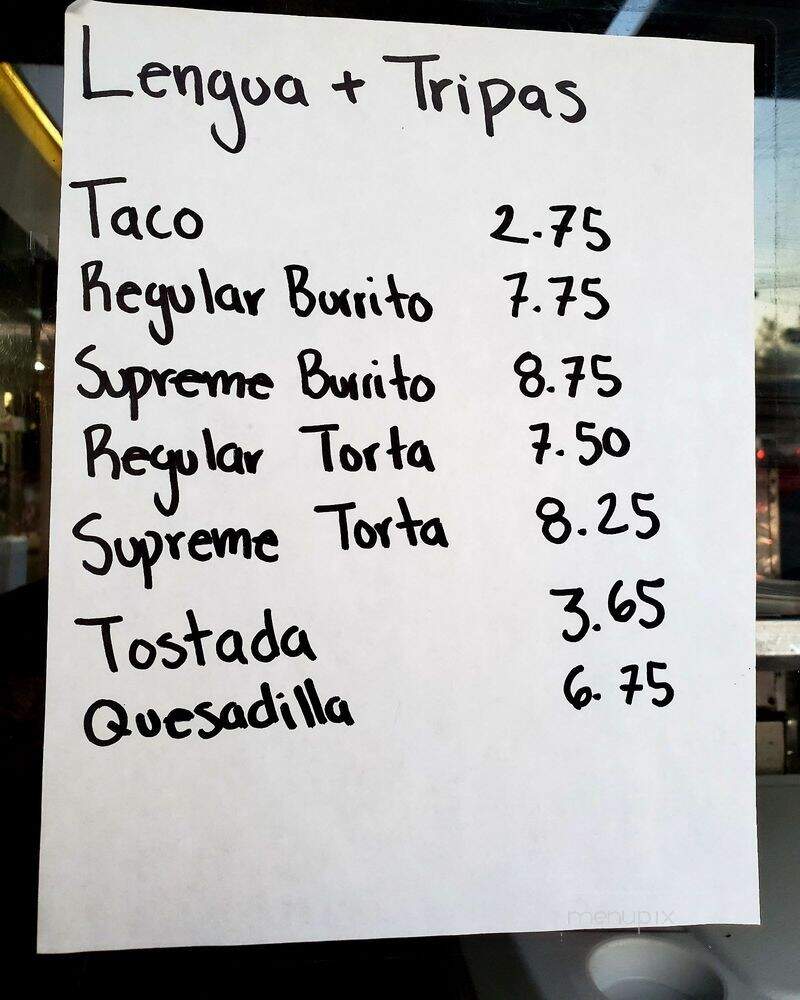 Lengua + Tripas
Taco 2.75
Regular Burrito 7.75
Supreme Burrito 8.75
Regular Torta 7.50
Supreme Torta 8.25
Tostada 3.65
Quesadilla 6.75
menupix